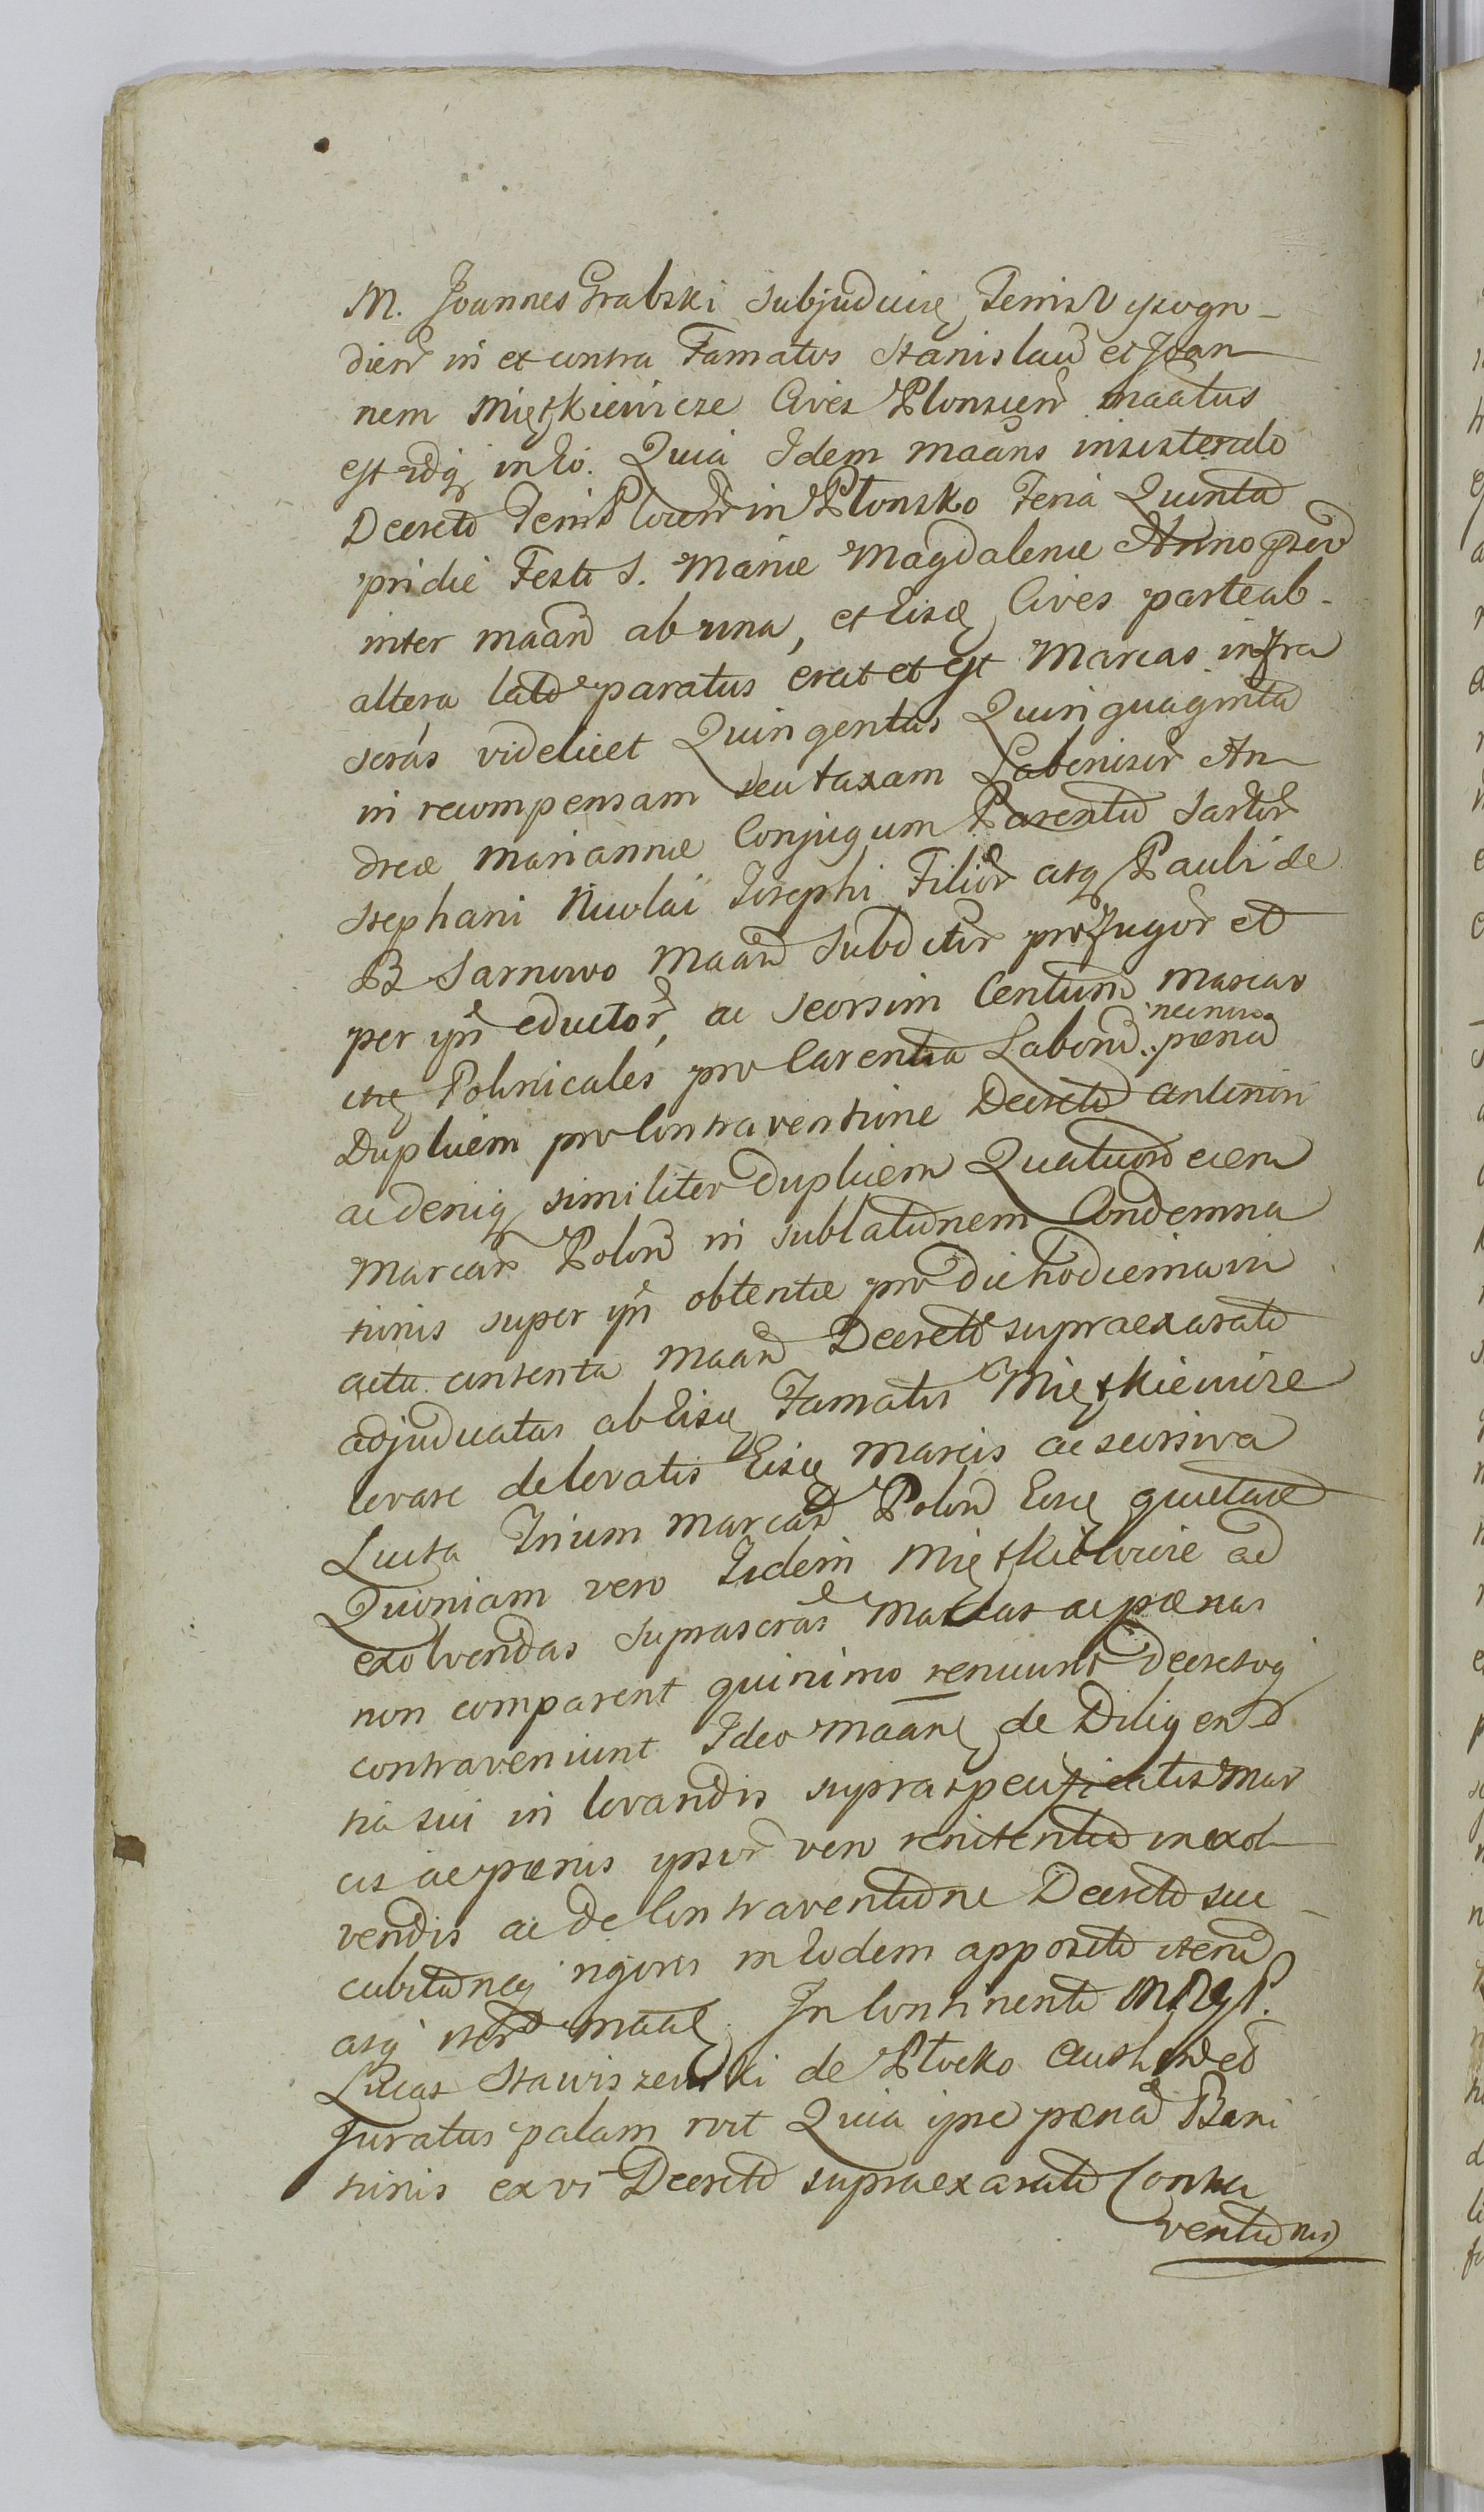 M. Joannes Grabski Subjudicis Terris Wyszogro-
dien in et contra Famatos Stanislaũ et Joan
nem Mięskiewicze Cives Plonscen maatus
est idq in Eo. Quia Idem maans insistendo
Decreto Terris Plocen in Płonsko Feria Quinta
pridie Festi S. Mariæ Magdalenæ Anno
inter maan ab una, et Eisdē Cives parte ab
altera lato paratus erat et est Marcas infra
scras videlicet Quingentas Quinquaginta
in recompensam seu taxam An
dreæ Mariannæ Conjugum Parentũ
Stephani Nicolai Josephi Filior atq Pauli de
B Sarnowo maan Subditor profugor et
per ipõ eductor, ac seorsim Centum Marcas
itē Polonicales pro Carentia Laborũ. necnon pœnã
Duplicem pro Contraventione Decreto anteriori
ac deniq similiter duplicem Quatuordecem
Marcar Polon in sublationem Condemna
tionis super ipõ obtentæ pro die hodierna in
actu contenta maan Decreto supraexarato
adjudicatas ab Eisdē Famatis Mięskiewicze
levare de levatis Eisdē Marcis ac seorsiva
Lucta Trium Marcar Polon Eosdē quietare
Quoniam vero Iidem Mięskiewicze ad
exolvendas suprascrãs Marcas ac pœnas
non comparent quinimo renuunt Decretoq
contraveniunt Ideo maanę de Diligen
tia sui in levandis supraspecificatis Mar
cis ac pœnis ipsor vero renitentia in exol
vendis ac de Contraventione Decreto suc
cubitioneq rigoris in Eodem appositi iterũ
atq iterũ maaę. In Continenti
Lucas Stawiszewski de Płocko
Juratus palam rvit Quia ipse pœnã Bani
tionis ex vi Decreti supraexarati Contra
ventionis